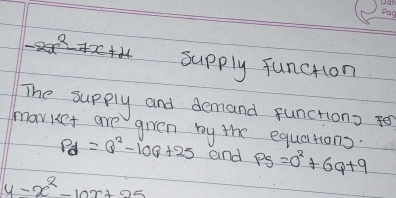 -2x² - 7x + 4
Supply Function
The supply and demand functions for
market are given by the equations.
Pd = Q² - 10Q + 25 and Ps = Q² + 6Q + 9
y = x² - 10x + 25